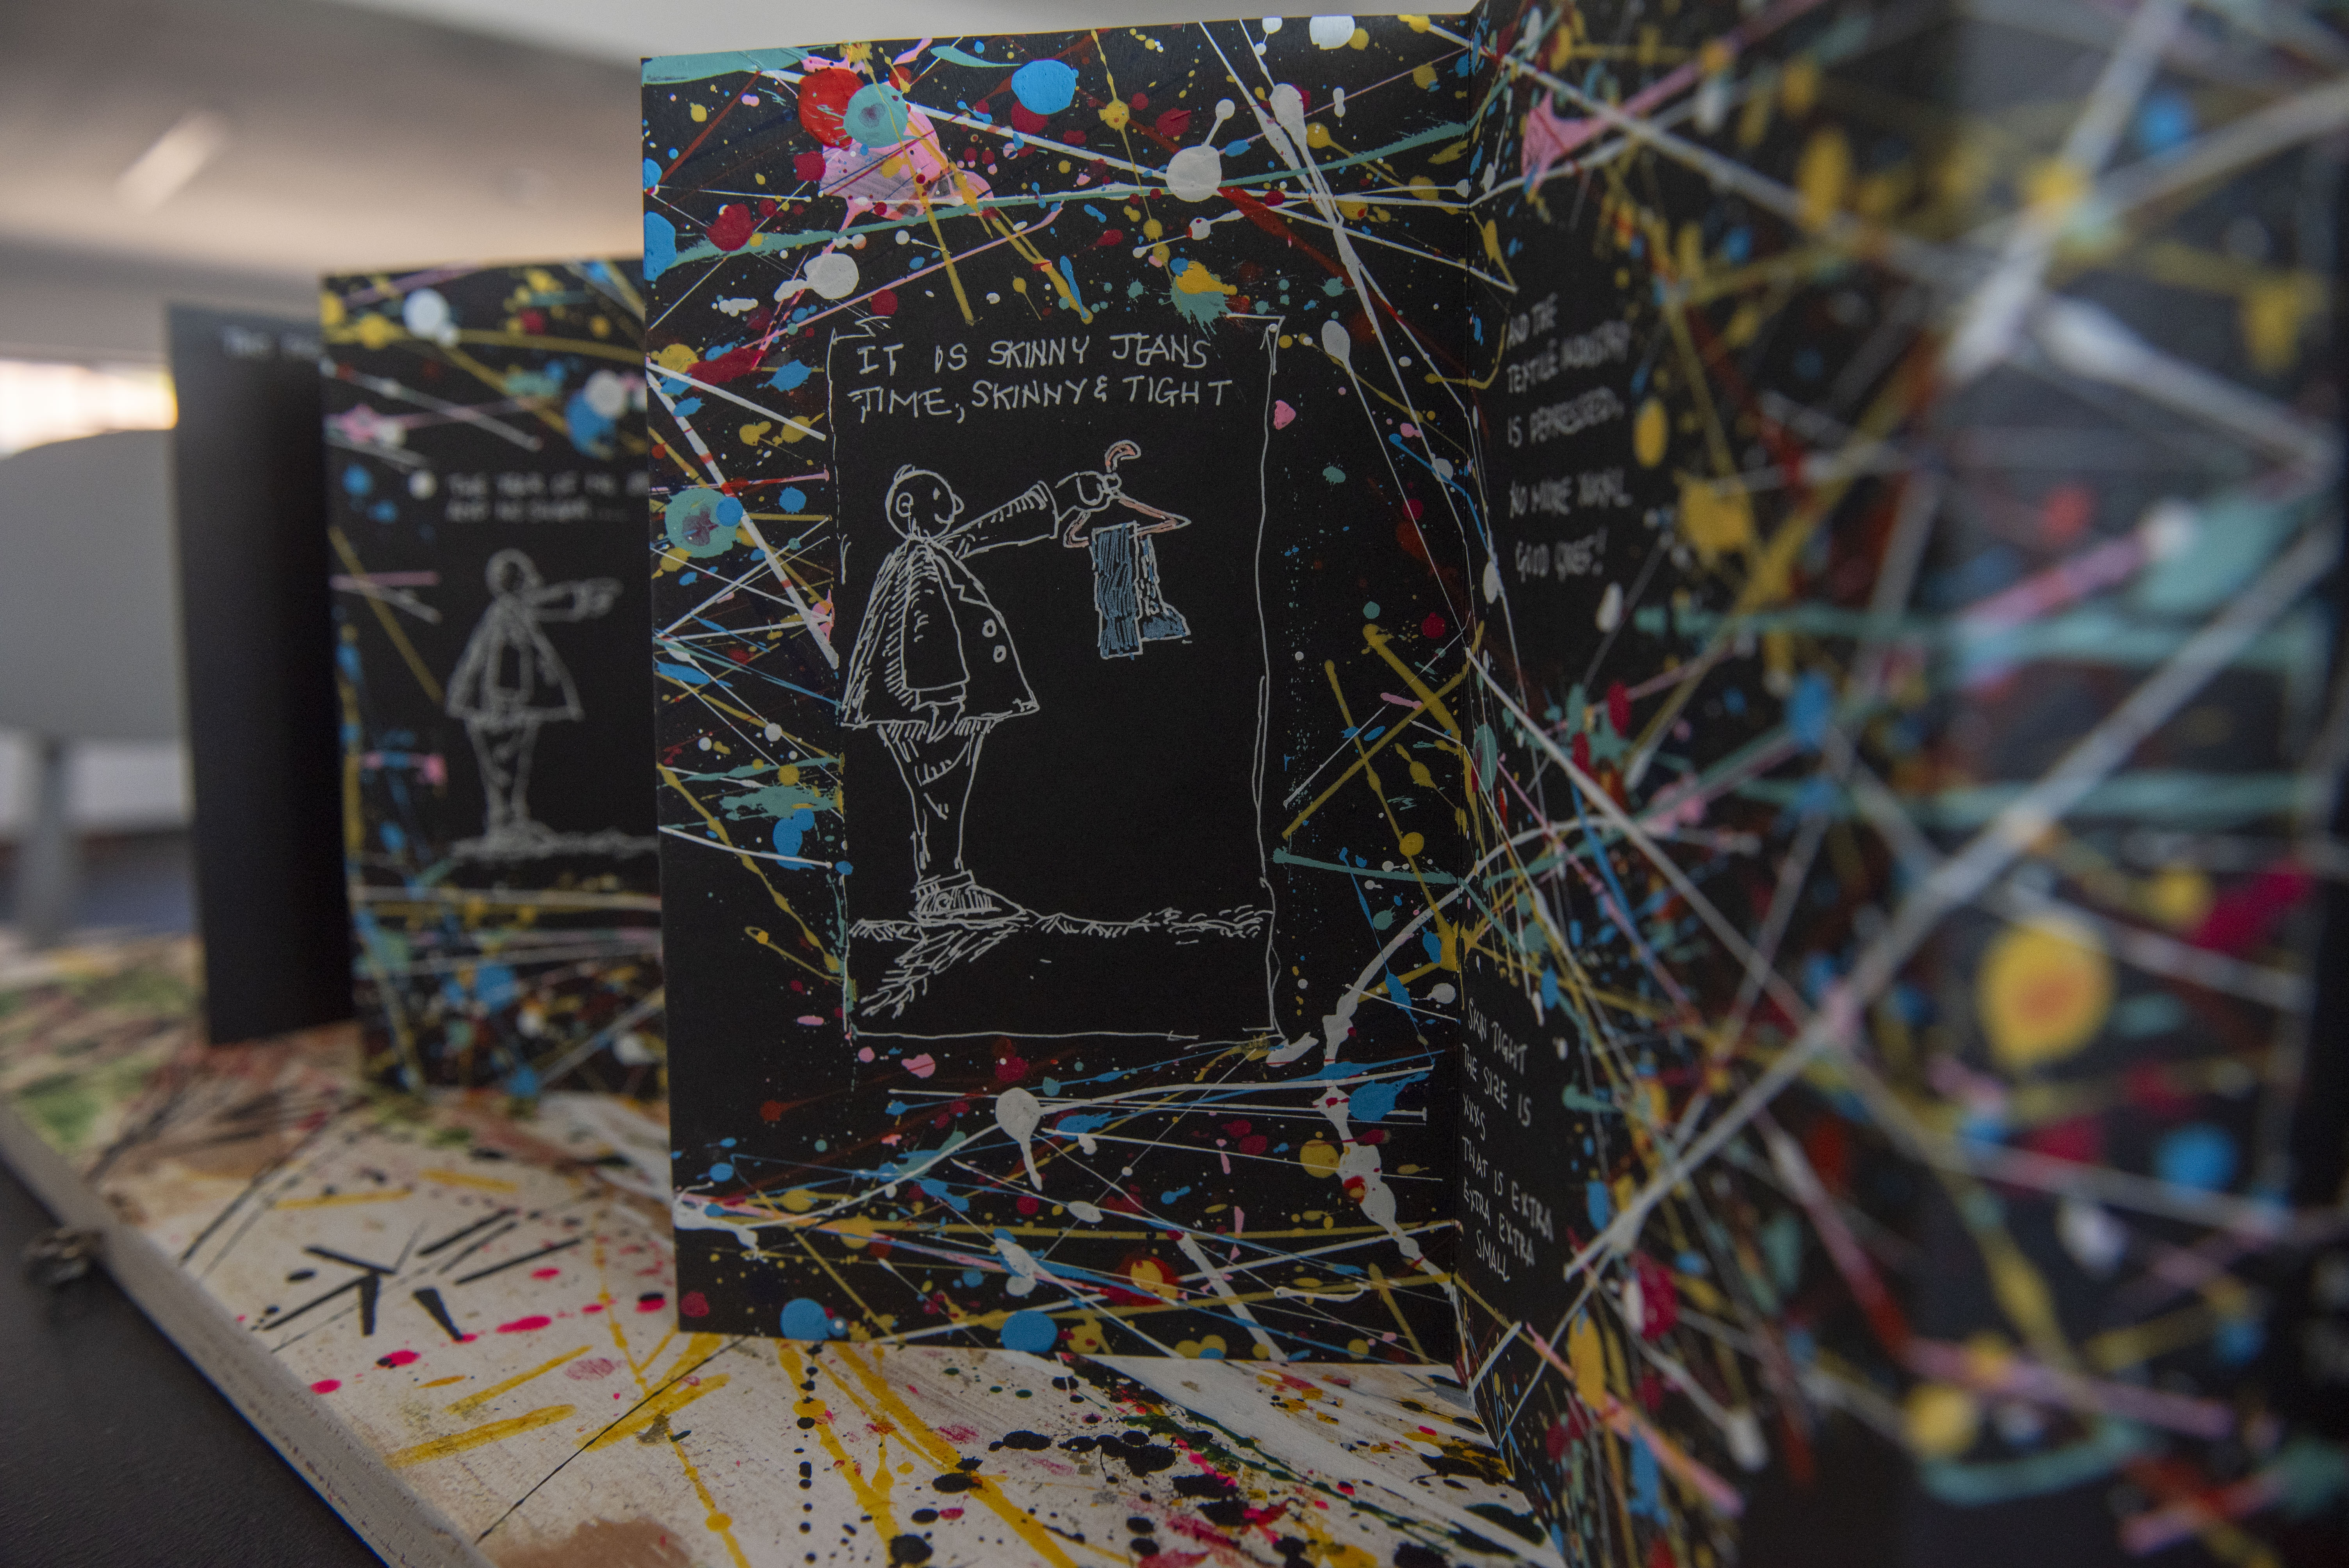 IT IS SKINNY JEANS
TIME, SKINNY & TIGHT
AND THE
TEXTILE INDUSTRY
IS DEPRESSED,
NO MORE
GOOD GRIEF!
SKIN TIGHT
THE SIZE IS
XXXS
THAT IS EXTRA
EXTRA EXTRA
SMALL